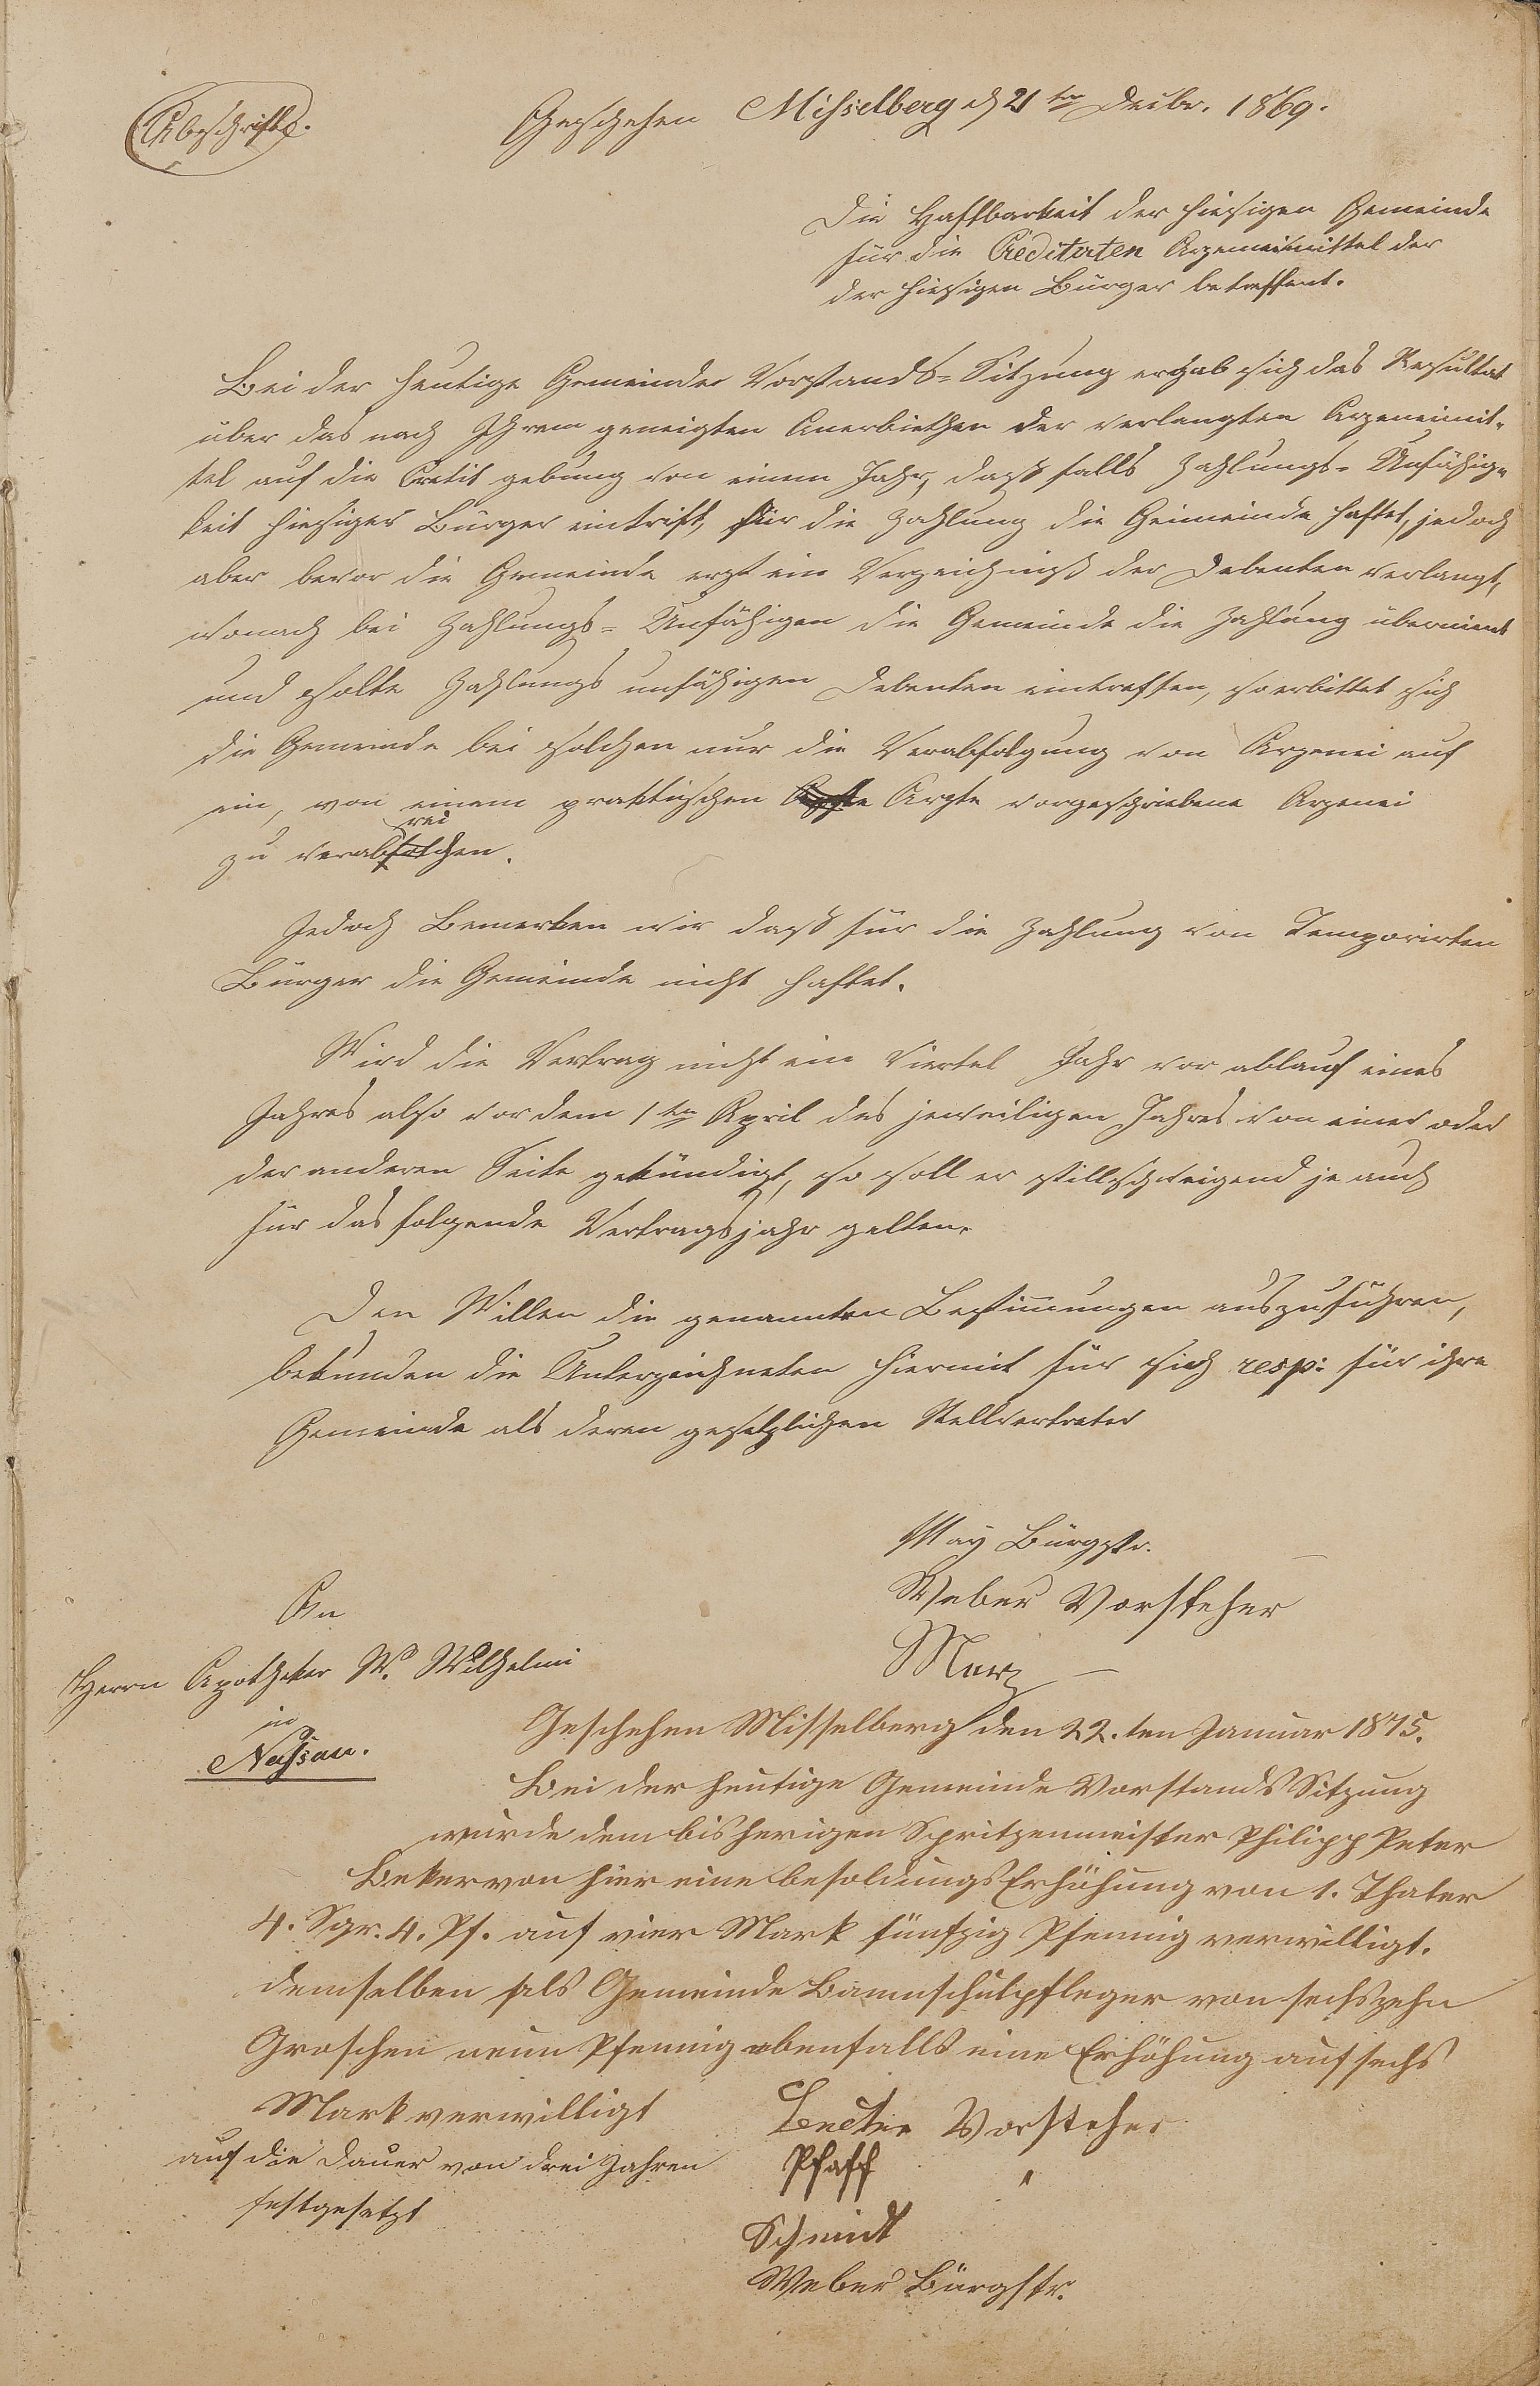 Abschrift.
Geschehen Misselberg d 21ten Decbr. 1869.
Die Haftbarkeit der hiesigen Gemeinde
für die Creditirten Arzeneimittel der
der hiesigen Bürger betreffent.
Bei der heutige Gemeinde Vorstands-Sitzung ergab sich das Resultat
über das nach Ihrem geneigten Anerbiethen der verlangten Arzeneimit-
tel auf die Cretit gebung von einem Jahr, daß falls Zahlungs-Unfähig-
keit hiesiger Bürger eintrift, für die Zahlung die Gemeinde haftet, jedoch
aber bevor die Gemeinde erst ein Verzeichniß der Debenten verlangt,
wonach bei Zahlungs-Unfähigen die Gemeinde die Zahlung übernimt
und solte Zahlungs unfähigen Debenten eintreffen, so erbittet sich
die Gemeinde bei solchen nur die Verabfolgung von Arzenei auf
ein, von einem praktischen Arzte vorgeschriebene Arzenei
zu verabreichen.
Jedoch Bemerken wir daß für die Zahlung von Temporirten
Bürger die Gemeinde nicht haftet.
Wird die Vertrag nicht ein Viertel Jahr vor ablauf eines
Jahres also vor dem 1ten April des jeweiligen Jahres von einer oder
der anderen Seite gekündigt, so soll er stillschweigend je auch
für das folgende Vertragsjahr gelten.
Den Willen die genannten Bestimmungen auszuführen,
bekunden die Unterzeichneten hiermit für sich resp: für ihre
Gemeinde als deren gesetzlichen Stellvertreter
May Bürgstr.
Weber Vorsteher
Merz
An
Herrn Apotheker W. Wilhelmi
in
Nassau.
Geschehen Misselberg den 22.ten Januar 1875.
Bei der heutige Gemeinde Vorstands Sitzung
wurde dem bisherigen Spritzenmeister Philipp Peter
Beker von hier eine besoldungs Erhöhung von 1. Thaler
4. Sgr. 4. Pf. auf vier Mark fünfzig Pfennig verwilligt.
demselben als Gemeinde Baumschulpfleger von sechszehn
Groschen neun Pfennig ebenfalls eine Erhöhung auf sechs
Mark verwilligt
auf die Dauer von drei Jahren
festgesetzt
Vorsteher
Pfaff "
Schmidt
Weber Bürgstr.